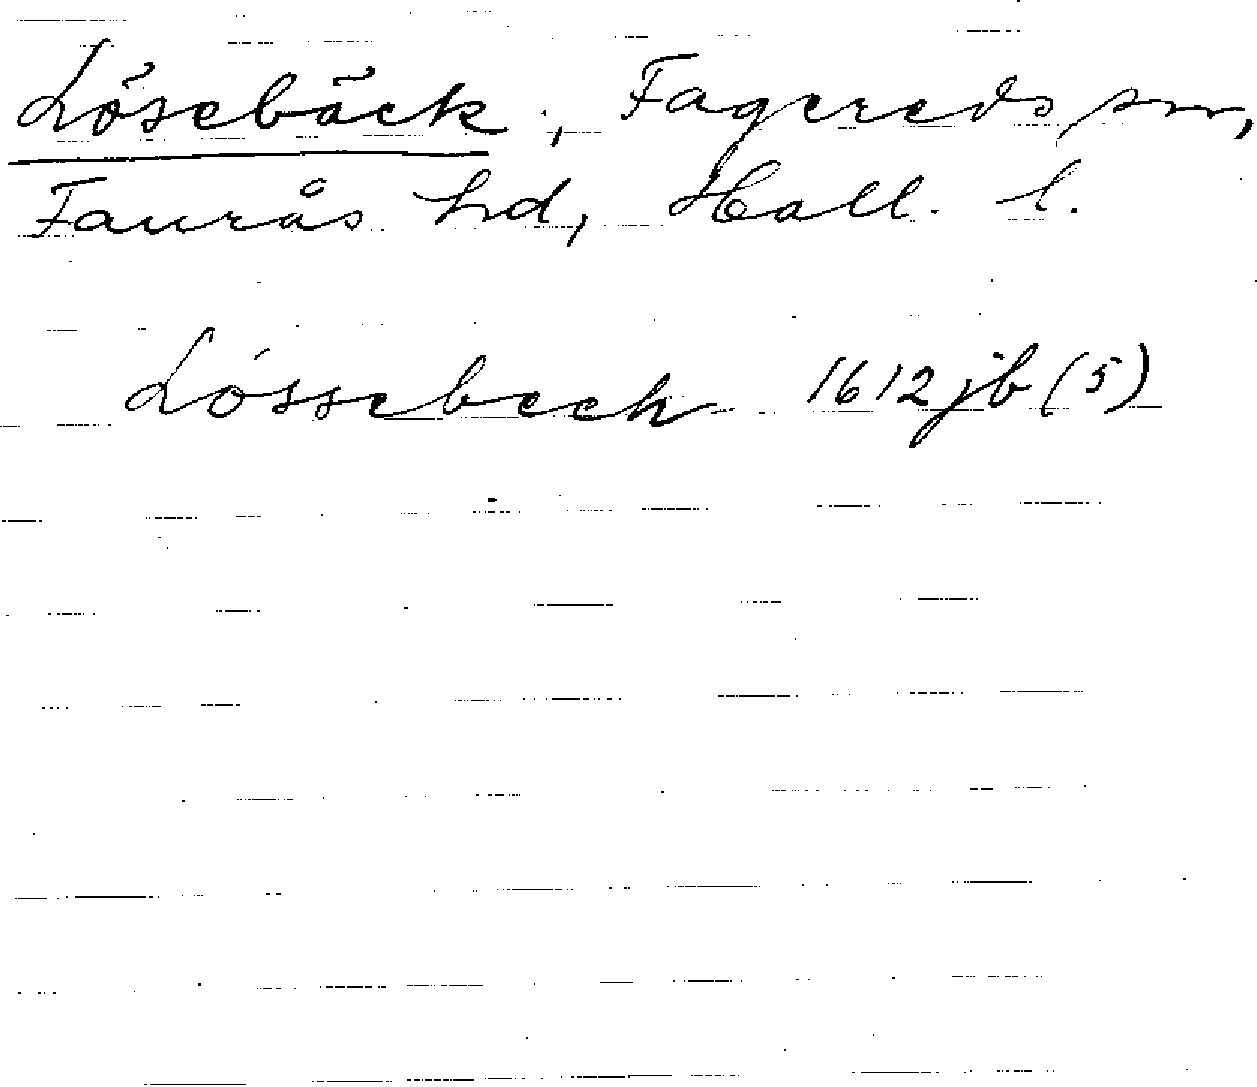 Lösebäck, Fagereds sn,
Faurås hd, Hall. l.
Lóssebeck 1612 jb (5)